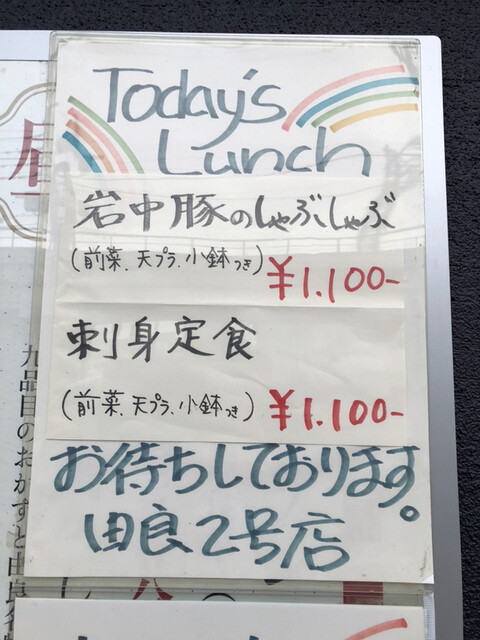 Today's
Lunch
岩中豚のしゃぶしゃぶ
(前菜、天プラ、小鉢つき)
¥1.100-
刺身定食
(前菜、天プラ、小鉢つき)
¥1.100-
お待ちしております。
由良2号店
昼
九品目のおかずと由良名物